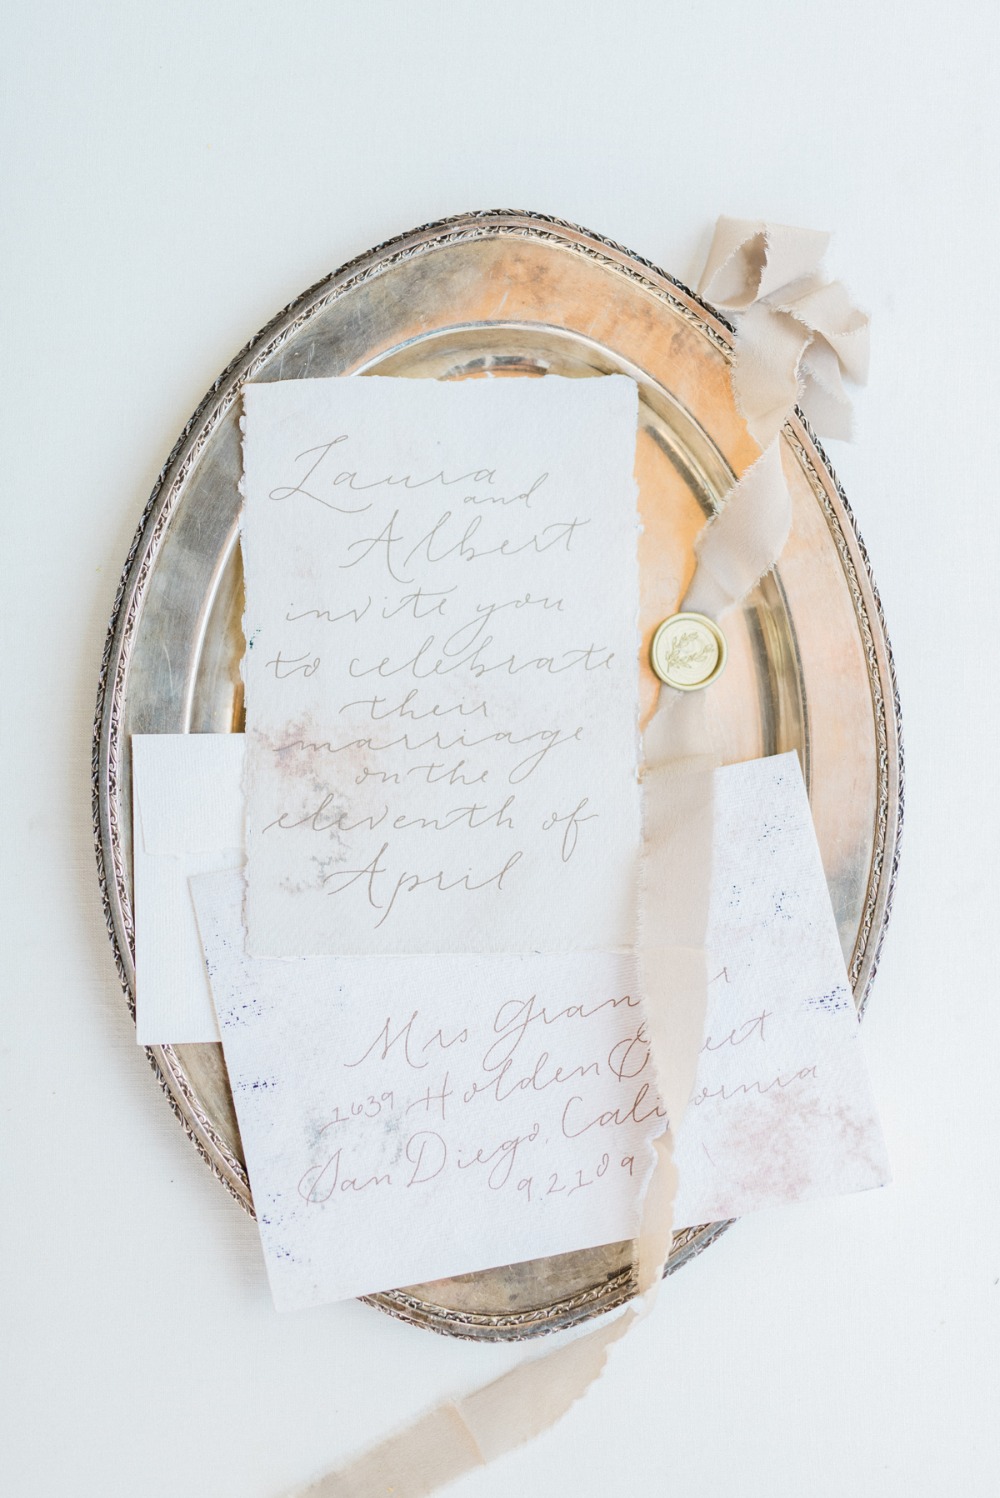 Laura
and
Albert
invite you
to celebrate
their
marriage
on the
eleventh of
April
Mrs
1639 Holden
San Diego, California
92109